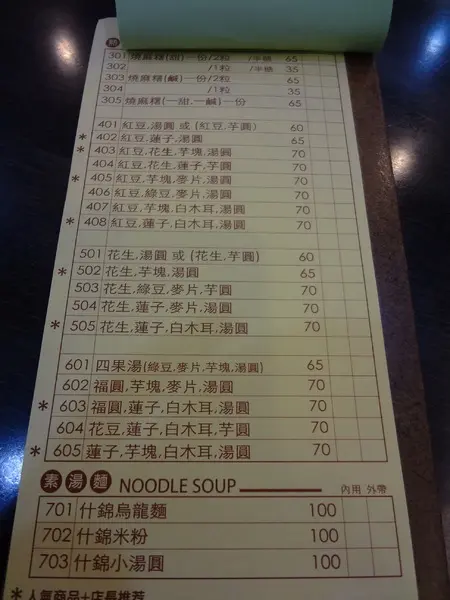 301 燒麻糬(甜)一份/2粒 /半糖 65
302 /1粒 /半糖 35
303 燒麻糬(鹹)一份/2粒 65
304 /1粒 35
305 燒麻糬(一甜.一鹹)一份 65
401 紅豆,湯圓 或 (紅豆,芋圓) 60
* 402 紅豆,蓮子,湯圓 65
* 403 紅豆,花生,芋塊,湯圓 70
404 紅豆,花生,蓮子,芋圓 70
* 405 紅豆,芋塊,麥片,湯圓 70
406 紅豆,綠豆,麥片,芋圓 70
407 紅豆,芋塊,白木耳,湯圓 70
* 408 紅豆,蓮子,白木耳,湯圓 70
501 花生,湯圓 或 (花生,芋圓) 60
* 502 花生,芋塊,湯圓 65
503 花生,綠豆,麥片,芋圓 70
504 花生,蓮子,麥片,湯圓 70
* 505 花生,蓮子,白木耳,湯圓 70
601 四果湯(綠豆,麥片,芋塊,湯圓) 65
602 福圓,芋塊,麥片,湯圓 70
* 603 福圓,蓮子,白木耳,湯圓 70
604 花豆,蓮子,白木耳,芋圓 70
* 605 蓮子,芋塊,白木耳,湯圓 70
素湯麵 NOODLE SOUP 內用 外帶
701 什錦烏龍麵 100
702 什錦米粉 100
703 什錦小湯圓 100
* 人氣商品+店長推荐